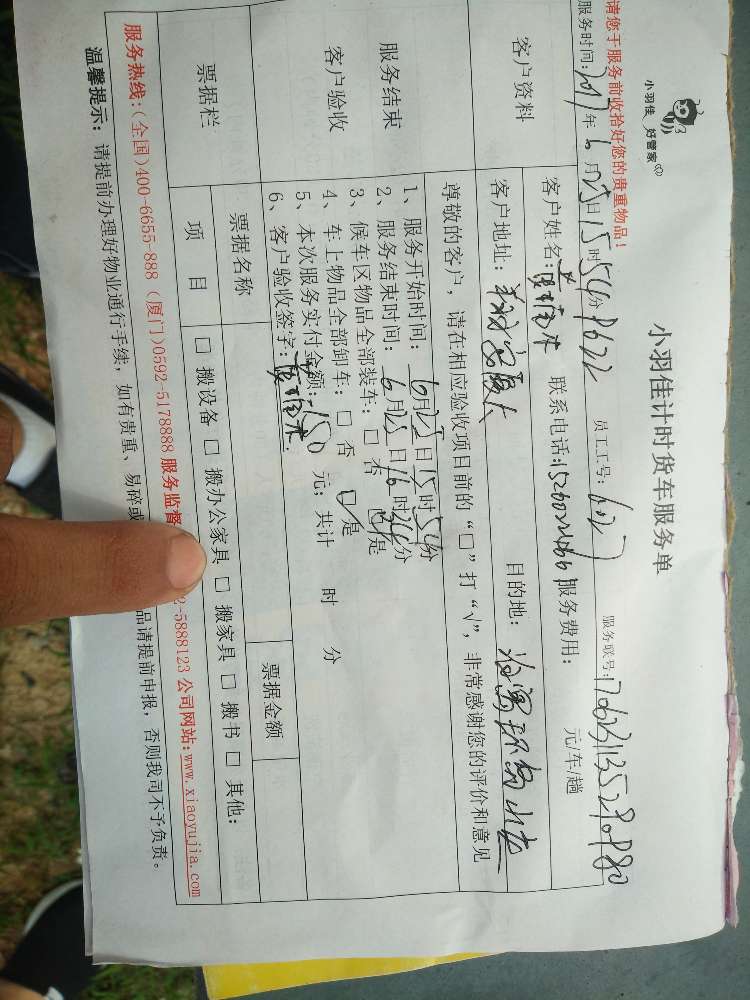 小羽佳 好管家
小羽佳计时货车服务单
请您于服务前收拾好您的贵重物品!
服务时间:2017年6月25日15时54分 员工工号: 服务联号:
客户资料
客户姓名: 联系电话: 服务费用: 元/车/趟
客户地址: 目的地:
服务结束
客户验收
尊敬的客户,请在相应验收项目前的“□”打“√”,非常感谢您的评价和意见
1、服务开始时间: 6月25日15时54分
2、服务结束时间: 6月25日16时34分
3、候车区物品全部装车:□ 否 ☑ 是
4、车上物品全部卸车:□ 否 ☑ 是
5、本次服务实付金额:150 元;共计 时 分
6、客户验收签字:
票据栏
票据名称 票据金额
项 目 □ 搬设备 □ 搬办公家具 □ 搬家具 □ 搬书 □ 其他:
服务热线:(全国)400-6655-888 (厦门)0592-5178888 服务监督 2-5888123 公司网站:www.xiaoyujia.com
温馨提示: 请提前办理好物业通行手续,如有贵重、易碎或 品请提前申报,否则我司不予负责。